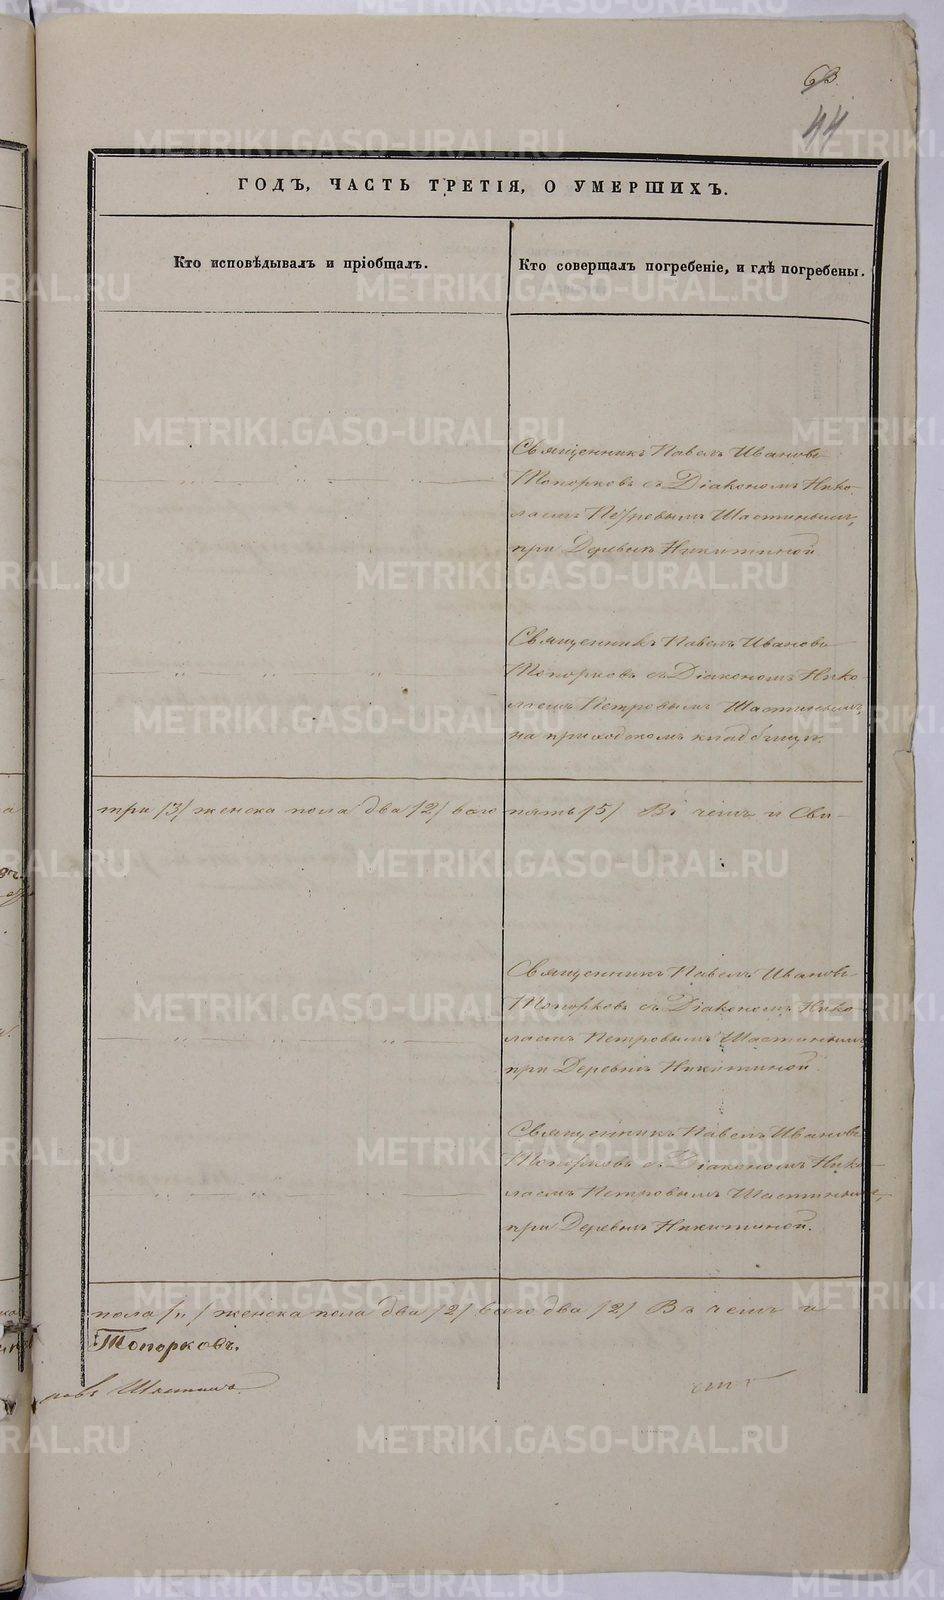 63.
44
ГОДЪ, ЧАСТЬ ТРЕТІЯ, О УМЕРШИХЪ.
Кто исповѣдывалъ и пріобщалъ.
Кто соверщалъ погребеніе, и гдѣ погребены.
Священникъ Павелъ Ивановъ
Топорковъ съ Діакономъ Нико-
лаемъ Петровымъ Шастинымъ,
при Деревнѣ Никитиной
Священникъ Павелъ Ивановъ
Топорковъ съ Діакономъ Нико-
лаемъ Петровымъ Шастинымъ,
на приходскомъ кладбищѣ.
три /3/ женска пола два /2/ всего пять /5/ Въ чемъ и Сви-
Священникъ Павелъ Ивановъ
Топорковъ съ Діакономъ Нико-
лаемъ Петровымъ Шастинымъ
при Деревнѣ Никитиной.
Священникъ Павелъ Ивановъ
Топорковъ съ Діакономъ Нико-
лаемъ Петровымъ Шастинымъ,
при Деревнѣ Никитиной.
пола /"/ женска пола два /2/ всего два /2/ Въ чемъ и
Топорковъ.
ровъ Шастинъ
METRIKI.GASO-URAL.RU